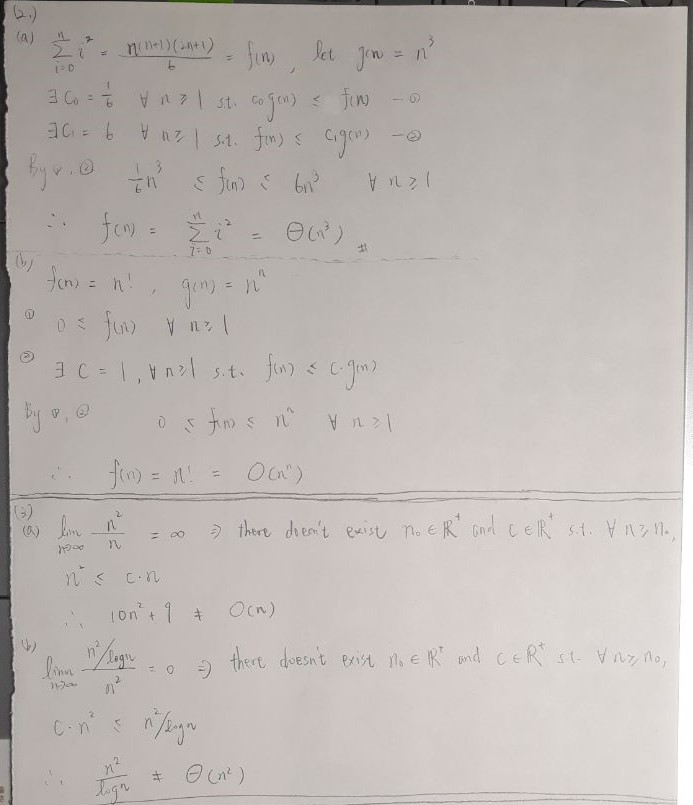 (2.)
(a) ∑_{i=0}^{n} i² = n(n+1)(2n+1)/6 = f(n), let g(n) = n³
∃ C₀ = 1/6 ∀ n ≥ 1 s.t. c₀g(n) ≤ f(n) —①
∃ C₁ = 6 ∀ n ≥ 1 s.t. f(n) ≤ c₁g(n) —②
By ①, ② 1/6 n³ ≤ f(n) ≤ 6n³ ∀ n ≥ 1
∴ f(n) = ∑_{i=0}^{n} i² = Θ(n³) #
(b)
f(n) = n! , g(n) = nⁿ
① 0 ≤ f(n) ∀ n ≥ 1
② ∃ C = 1, ∀ n ≥ 1 s.t. f(n) ≤ c·g(n)
By ①, ② 0 ≤ f(n) ≤ nⁿ ∀ n ≥ 1
∴ f(n) = n! = O(nⁿ)
(3)
(a) lim_{n→∞} n²/n = ∞ ⇒ there doesn't exist n₀ ∈ ℝ⁺ and c ∈ ℝ⁺ s.t. ∀ n ≥ n₀,
n² ≤ c·n
∴ 10n² + 9 ≠ O(n)
(b) lim_{n→∞} (n²/logn)/n² = 0 ⇒ there doesn't exist n₀ ∈ ℝ⁺ and c ∈ ℝ⁺ s.t. ∀ n ≥ n₀,
c·n² ≤ n²/logn
∴ n²/logn ≠ Θ(n²)